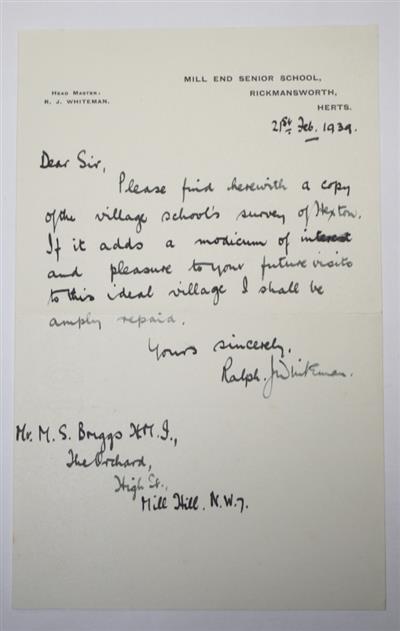 MILL END SENIOR SCHOOL,
RICKMANSWORTH,
HERTS.
HEAD MASTER,
R. J. WHITEMAN.
21st Feb. 1939.
Dear Sir,
Please find herewith a copy
of the village school's survey of Hexton.
If it adds a modicum of interest
and pleasure to your future visits
to this ideal village I shall be
amply repaid.
Yours sincerely,
Ralph. J. Whiteman.
Mr. M. S. Briggs H.M.I.,
The Orchard,
High St.,
Mill Hill. N.W.7.